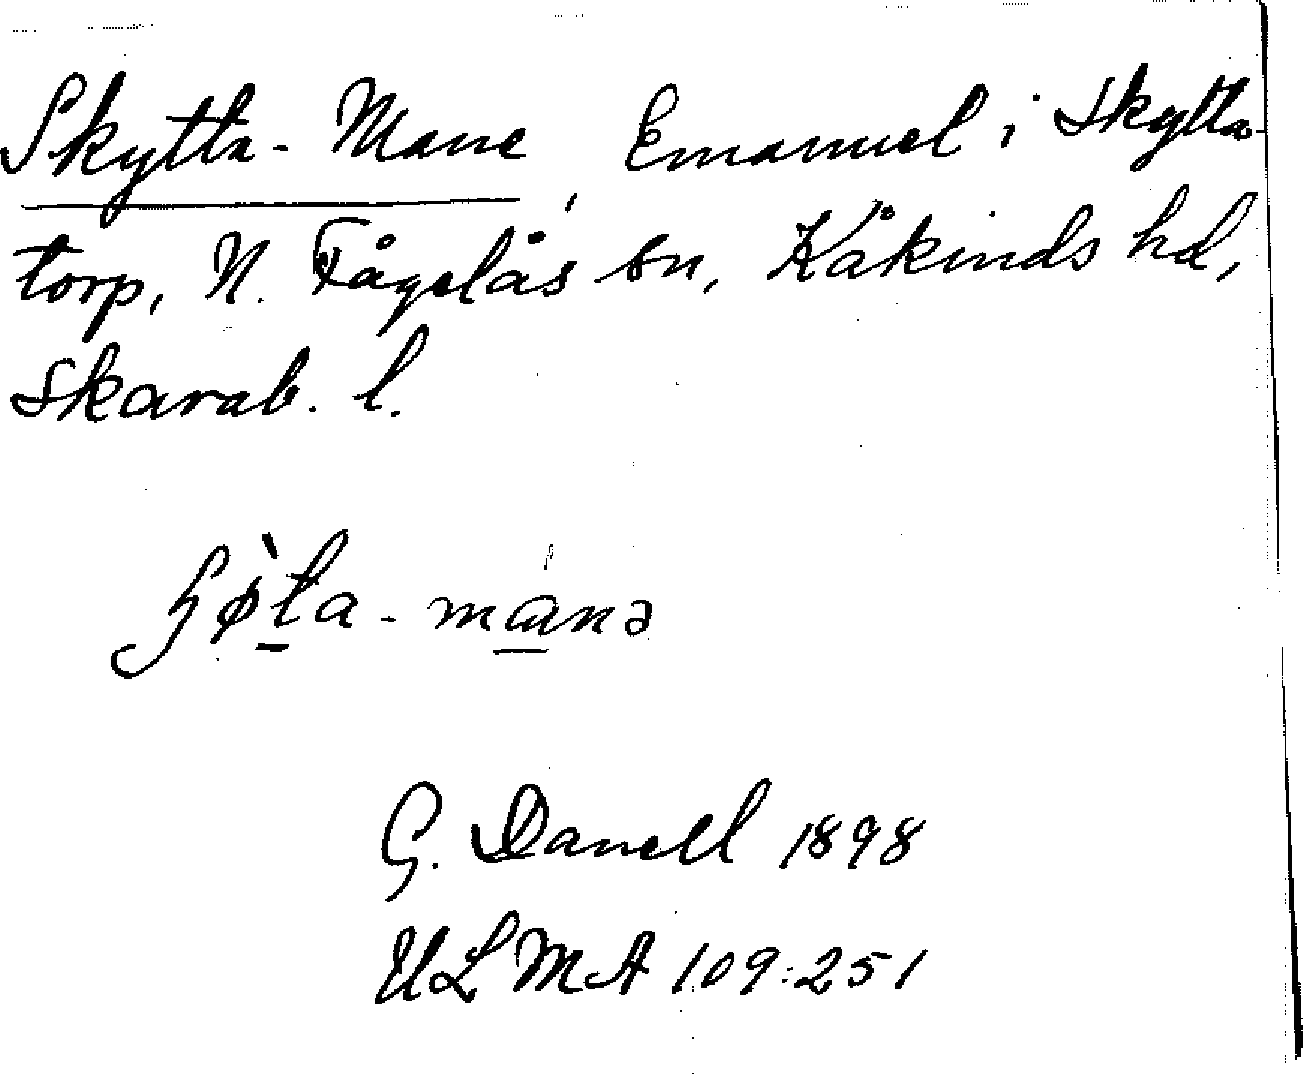 Skytta-Mane, Emanuel i Skytta-
torp, N. Fågelås sn, Kåkinds hd,
Skarab. l.
G. Danell 1898
ULMA 109:251